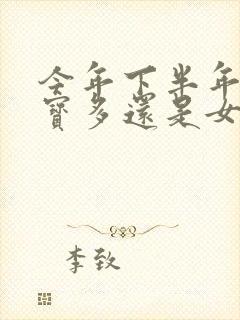 今年下半年
寶多還是女
李致